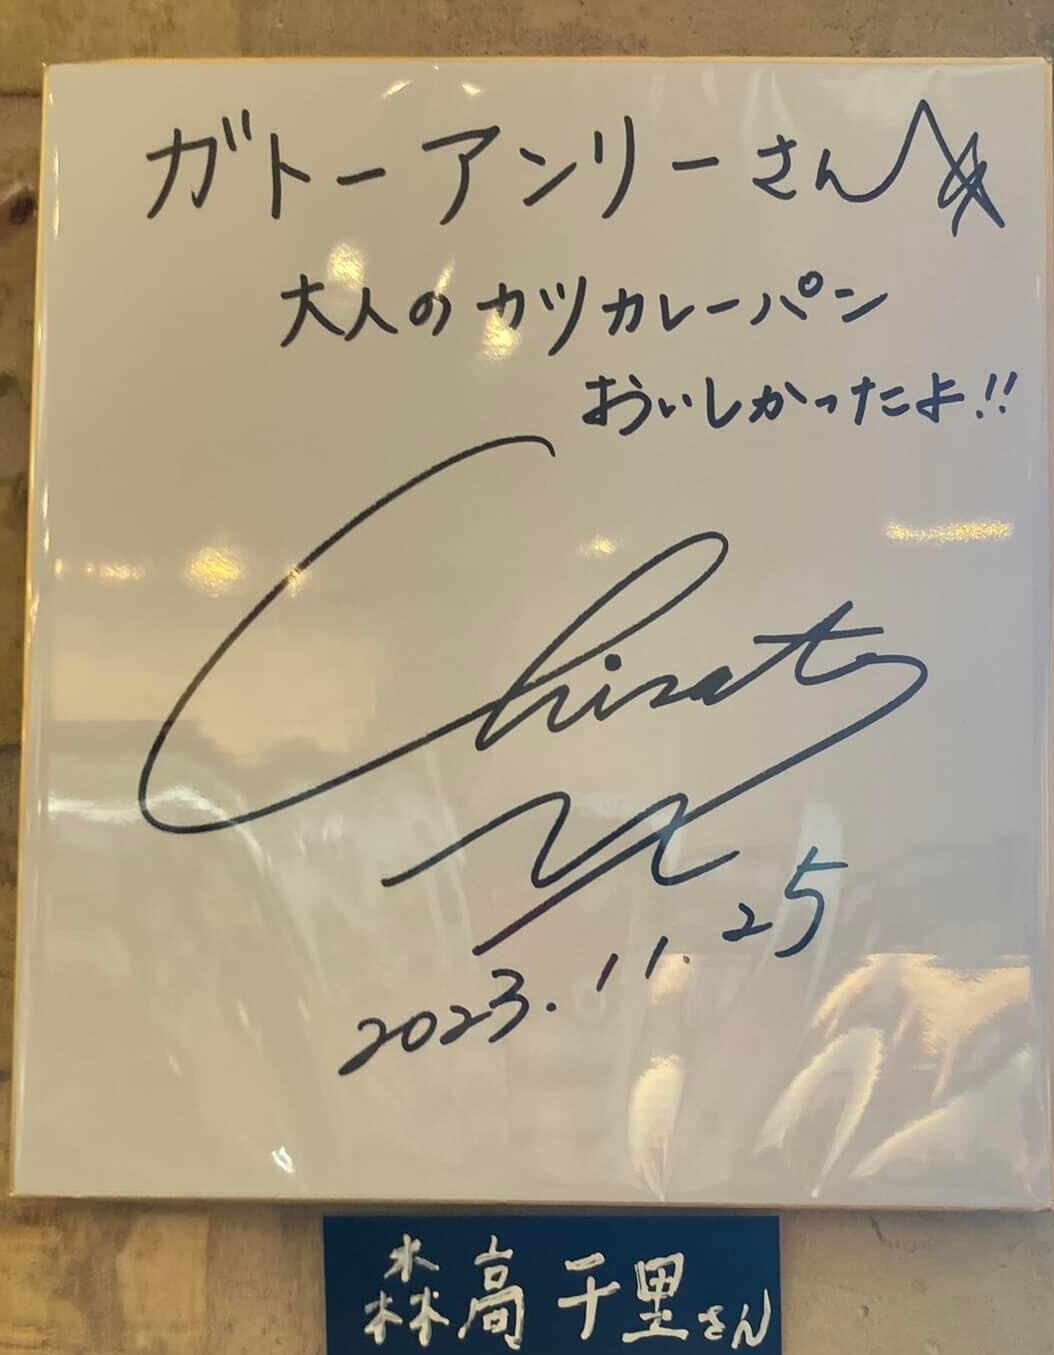 ガトーアンリーさん
大人のカツカレーパン
おいしかったよ!!
Chisato
M
2023.11.25
森高千里さん